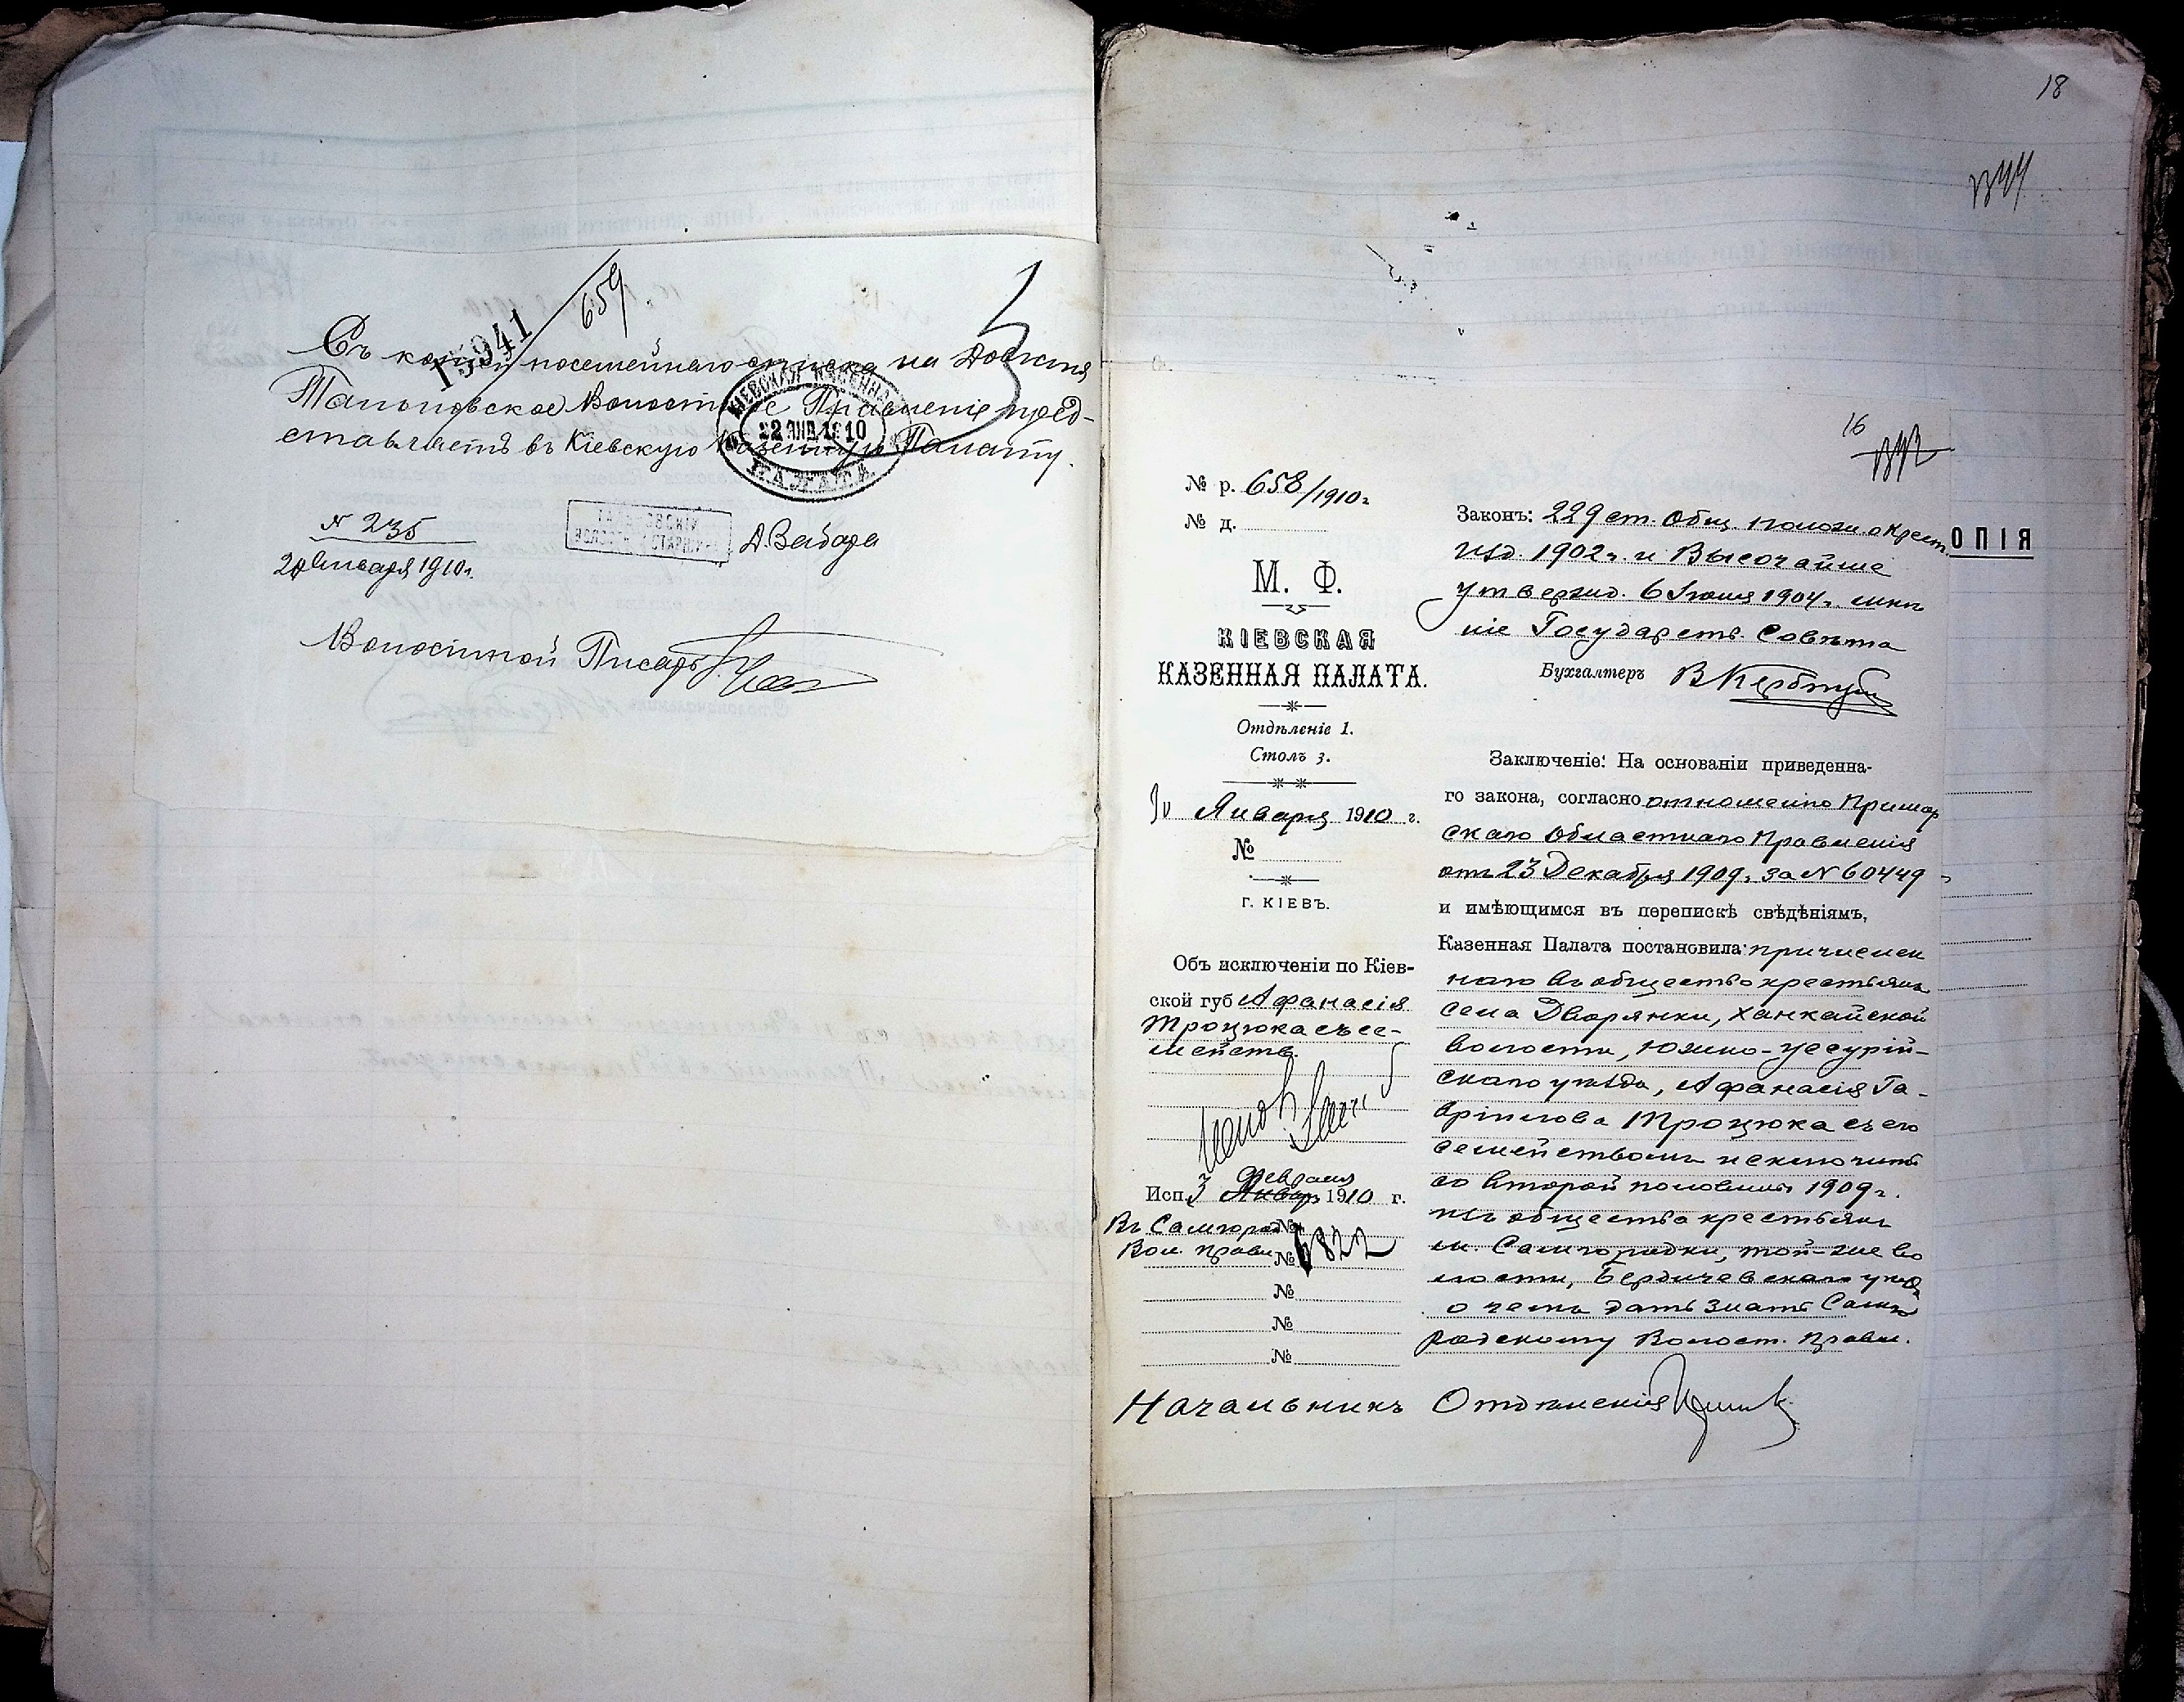 15941
659
3
Съ копией посемейнаго списка на
Тальновское Волостное Правленіе пред-
ставляетъ въ Кіевскую Казенную Палату.
КІЕВСКАЯ КАЗЕННАЯ
22 ЯНВ 1910
ПАЛАТА
N 235
20 Января 1910 г.
Волостной Писарь
18
16
ОПІЯ
№ р. 658/1910 г
№ д.
М. Ф.
КІЕВСКАЯ
КАЗЕННАЯ ПАЛАТА.
Отдѣленіе 1.
Столъ 3.
Января 1910 г.
№
Г. КІЕВЪ.
Объ исключеніи по Кіев-
ской губ Афанасія
Троцюка съ се-
мейств.
Исп. 3 Февраля Январ 1910 г.
Въ Самгород №
Вол. Правл №6822
№
№
№
Законъ: 229 ст. Общ. полож. о крест.
изд. 1902 г. и Высочайше
утвержд. 6 Іюня 1904 г. мнѣ
ніе Государств. Совѣта
Бухгалтеръ
Заключеніе: На основаніи приведенна-
го закона, согласно отношенію Примор
скаго Областнаго Правленія
отъ 23 Декабря 1909 г. за N 60449
и имѣющимся въ перепискѣ свѣдѣніямъ,
Казенная Палата постановила: причислен
наго въ общество крестьянъ
села Дворянки, Ханкайской
волости, Южно-Уссурій-
скаго уѣзда, Афанасія Га-
вріилова Троцюка съ его
семействомъ исключить
со второй половины 1909 г.
изъ общества крестьянъ
м. Самгородки, той-же во
лости, Бердичевскаго уѣзд
о чемъ дать знать Самго
родскому Волост. Правл.
Начальникъ Отдѣленія